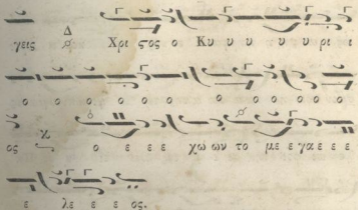 γεις Δ Χρι ϛος ο Κυ υ υ υ υ ρι ι
ο ο ο ο ο ο ο ο ο ο ο ο
ος χ ο ε ε ε χω ων το με ε γα ε ε ε
ε λε ε ε ος.